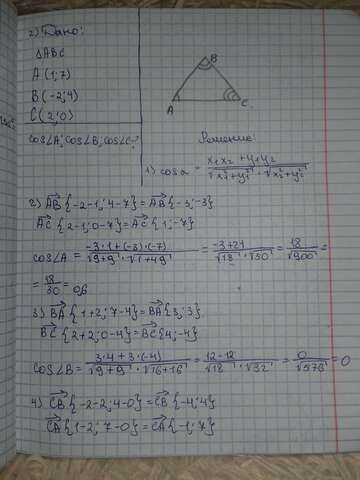 2) Дано:
ΔABC
A(1;7)
B(-2;4)
C(2;0)
cos∠A, cos∠B, cos∠C-?
B
A
C
Решение:
1) cosα = (x₁x₂ + y₁y₂)/(√(x₁²+y₁²) · √(x₂²+y₂²))
2) AB{-2-1; 4-7} = AB{-3; -3}
AC{2-1; 0-7} = AC{1; -7}
cos∠A = (-3·1+(-3)·(-7))/(√(9+9) · √(1+49)) = (-3+21)/(√18 · √50) = 18/√900 =
= 18/30 = 0,6
3) BA{1+2; 7-4} = BA{3; 3}
BC{2+2; 0-4} = BC{4; -4}
cos∠B = (3·4+3·(-4))/(√(9+9) · √(16+16)) = (12-12)/(√18 · √32) = 0/√576 = 0
4) CB{-2-2; 4-0} = CB{-4; 4}
CA{1-2; 7-0} = CA{-1; 7}